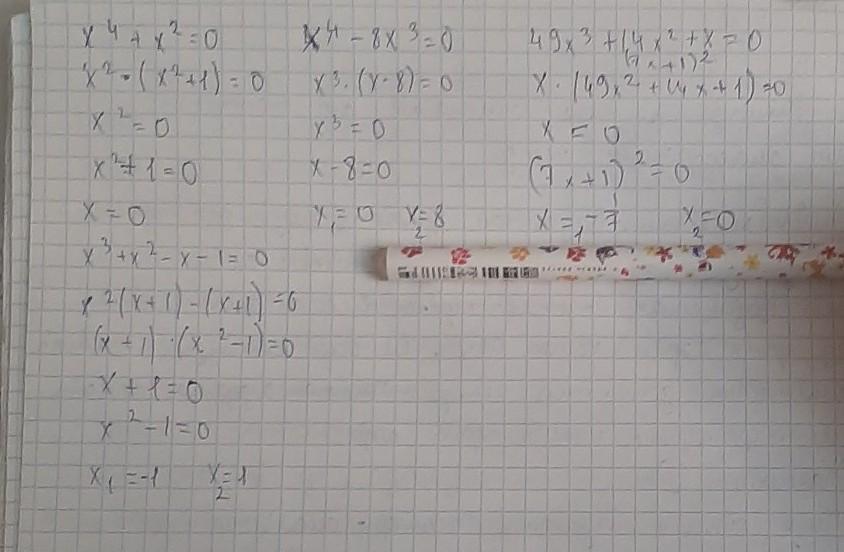 x⁴ + x² = 0
x² · (x² + 1) = 0
x² = 0
x² + 1 = 0
x = 0
x⁴ - 8x³ = 0
x³ · (x - 8) = 0
x³ = 0
x - 8 = 0
x₁ = 0 x₂ = 8
49x³ + 14x² + x = 0
(7x + 1)²
x · (49x² + 14x + 1) = 0
x = 0
(7x + 1)² = 0
x₁ = -1/7 x₂ = 0
x³ + x² - x - 1 = 0
x²(x + 1) - (x + 1) = 0
(x + 1) · (x² - 1) = 0
x + 1 = 0
x² - 1 = 0
x₁ = -1 x₂ = 1